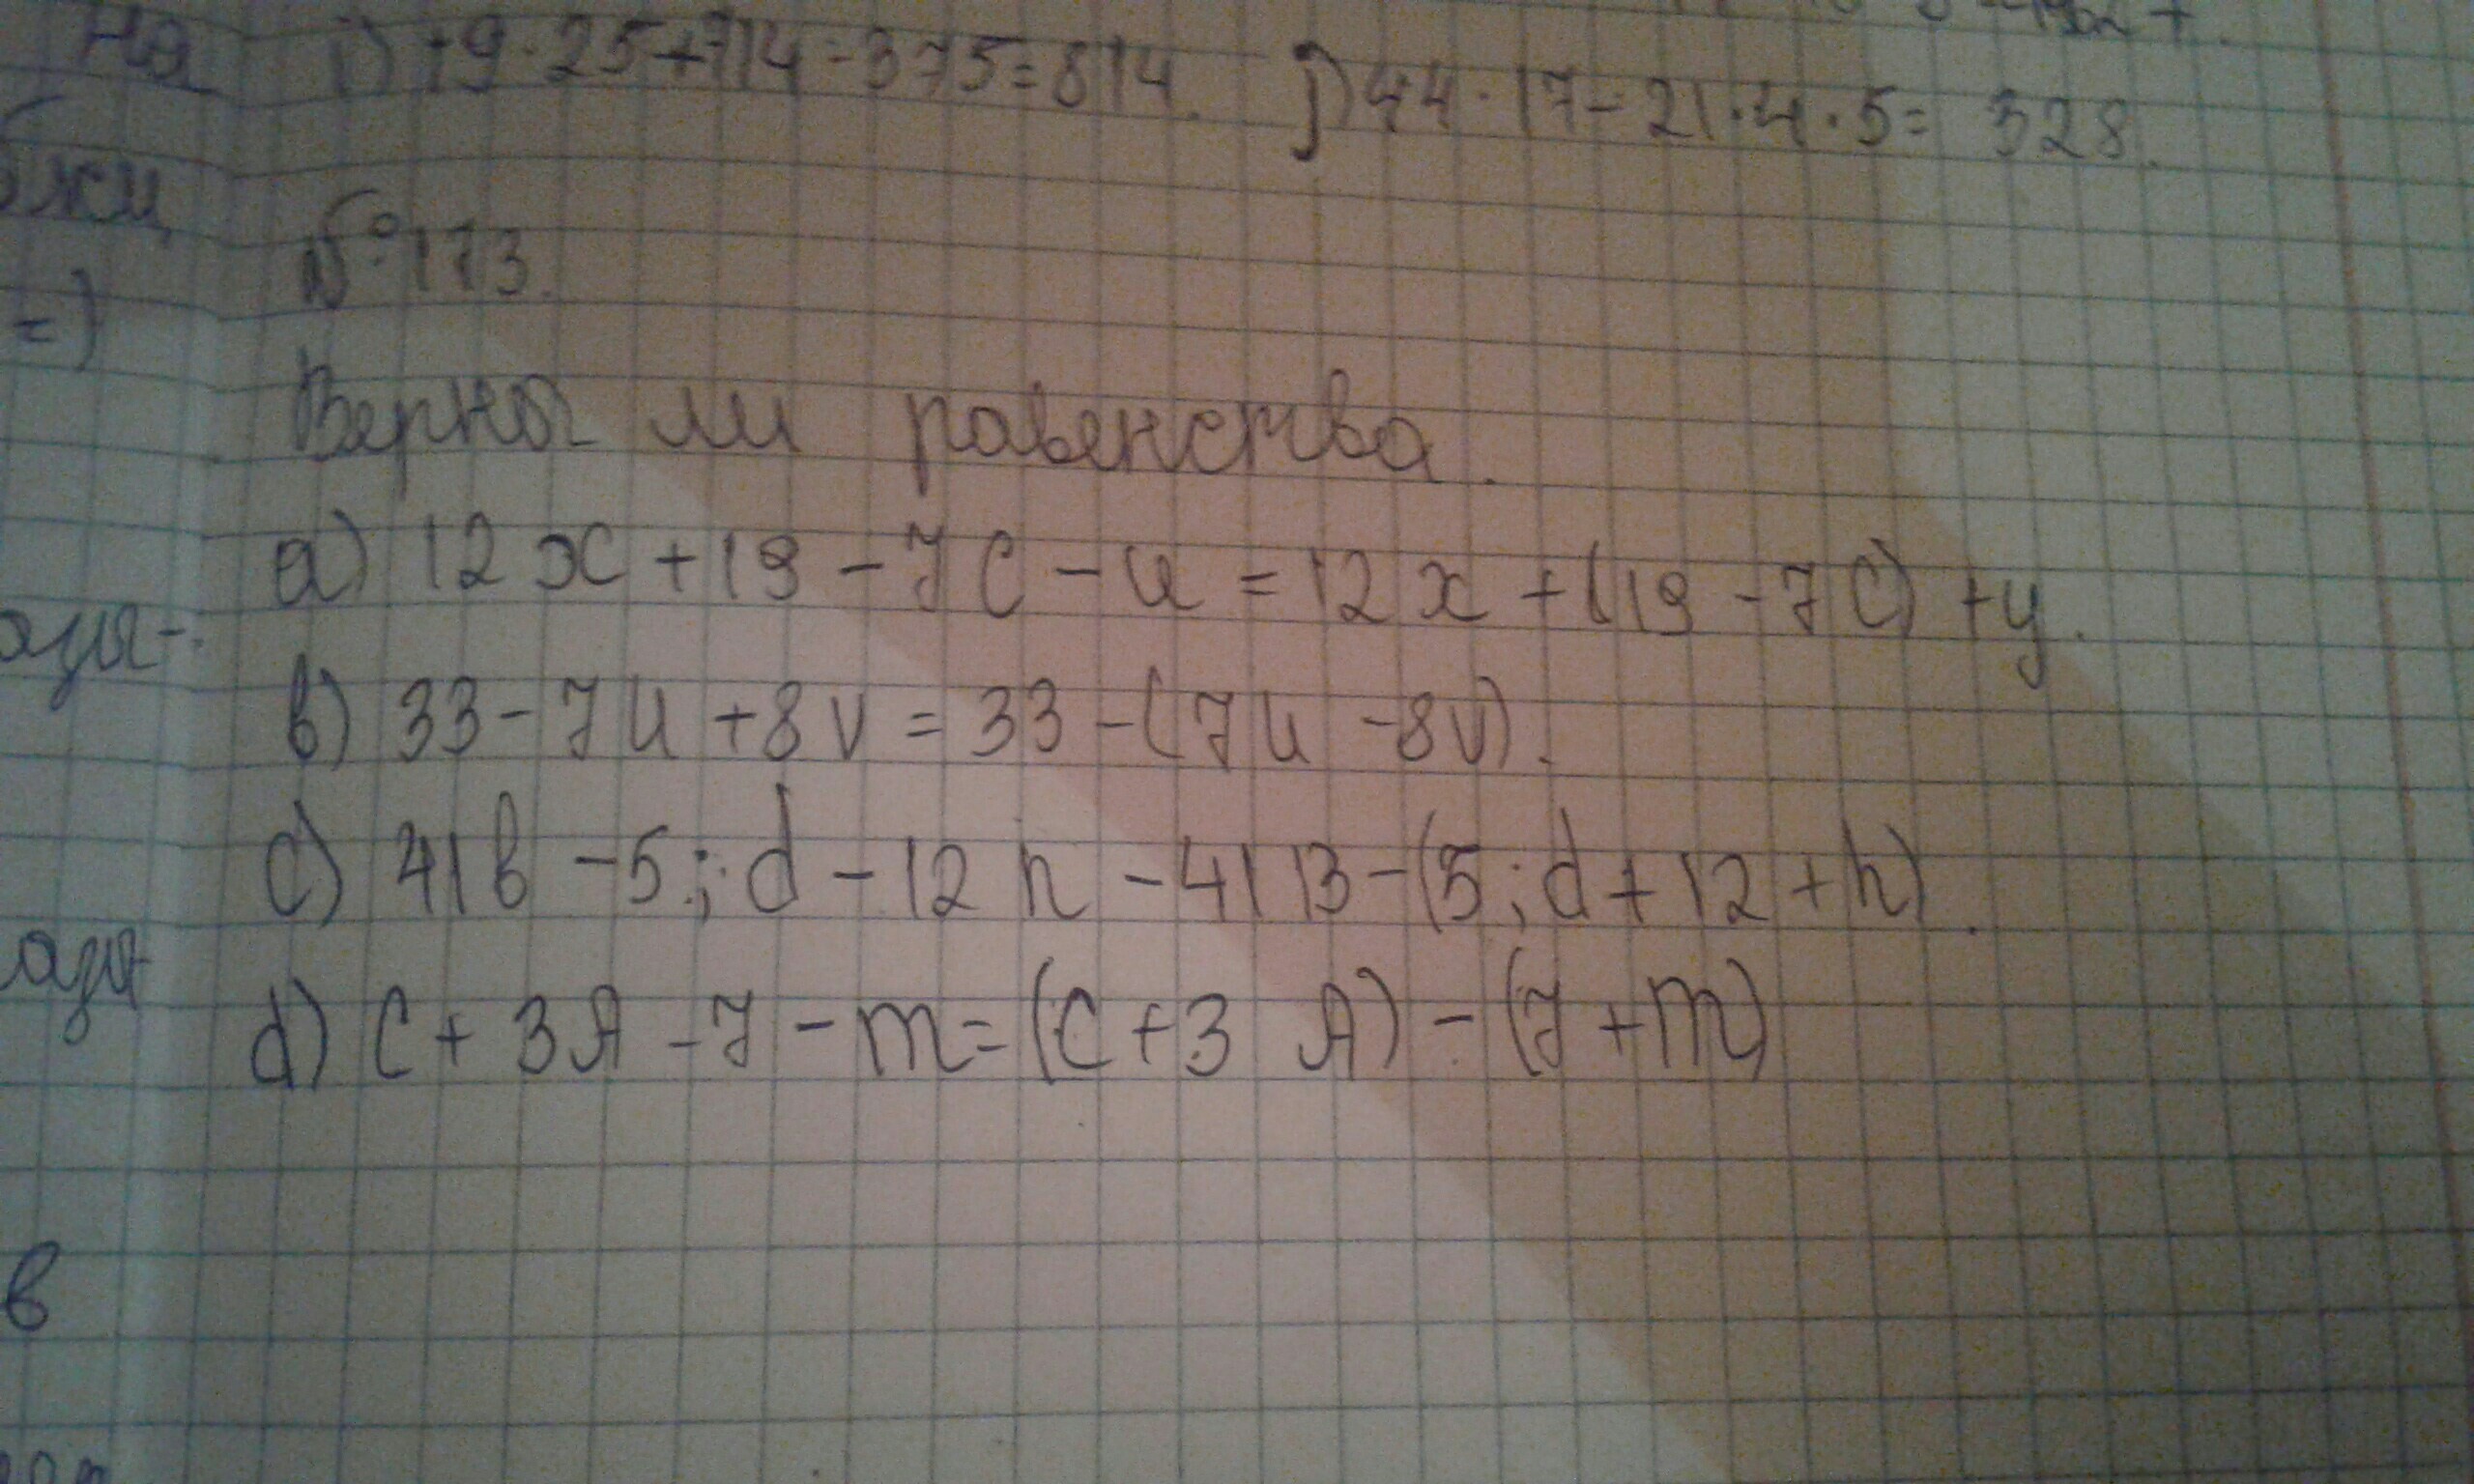 на i) 19·25+714-375=814. j) 44·17-21·4·5= 328.
№173.
=)
Верны ли равенства.
a) 12x+19-7c-u=12x+(19-7c)+y.
b) 33-7u+8v=33-(7u-8v).
c) 41b-5;d-12h-41B-(5;d+12+h).
d) c+3A-7-m=(c+3 A)-(7+m)
в